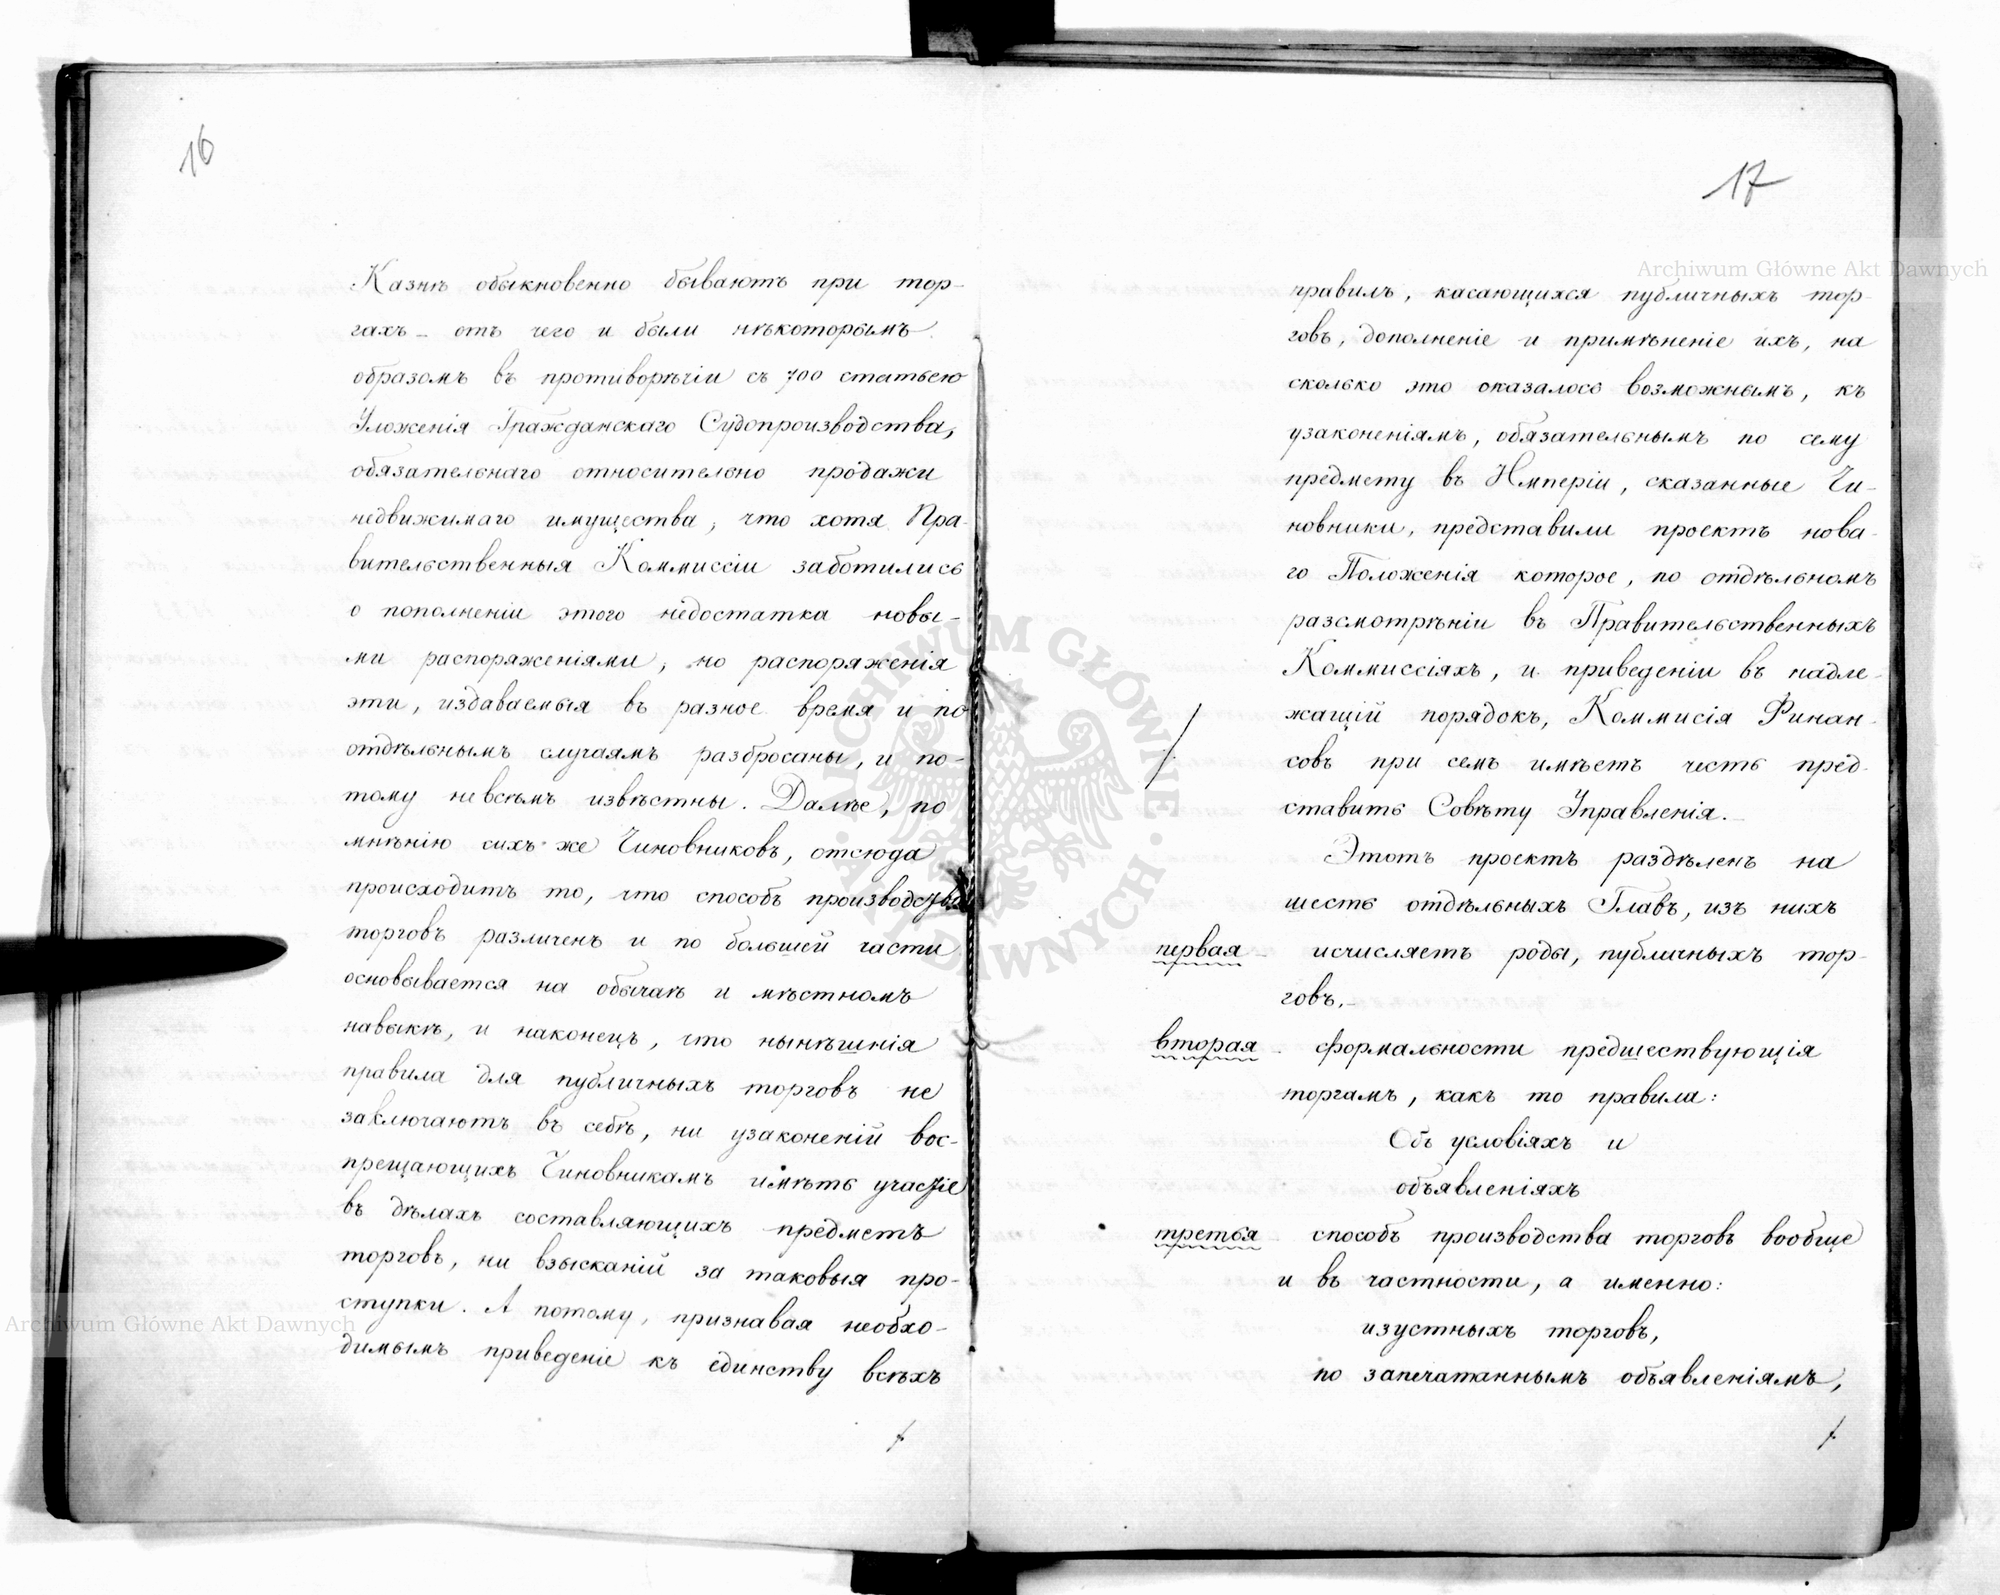 16
Казнѣ обыкновенно бываютъ при тор-
гахъ – отъ чего и были нѣкоторымъ
образомъ въ противорѣчіи съ 700 статьею
Уложенія Гражданскаго Судопроизводства,
обязательнаго относительно продажи
недвижимаго имущества; что хотя Пра-
вительственныя Коммиссіи заботились
о пополненіи этого недостатка новы-
ми распоряженіями, но распоряженія
эти, издаваемыя въ разное время и по
отдѣльнымъ случаямъ разбросаны, и по-
тому не всѣмъ извѣстны. Далѣе, по
мнѣнію сихъ же Чиновниковъ, отсюда
происходитъ то, что способъ производства
торговъ различенъ и по большей части
основывается на обычаѣ и мѣстномъ
навыкѣ, и наконецъ, что нынѣшнія
правила для публичныхъ торговъ не
заключаютъ въ себѣ, ни узаконеній вос-
прещающихъ Чиновникамъ имѣть участіе
въ дѣлахъ составляющихъ предметъ
торговъ, ни взысканій за таковыя про-
ступки. А потому, признавая необхо-
димымъ приведеніе къ единству всѣхъ
17
правилъ, касающихся публичныхъ тор-
говъ, дополненіе и примѣненіе ихъ, на
сколько это оказалось возможнымъ, къ
узаконеніямъ, обязательнымъ по сему
предмету въ Имперіи, сказанные Чи-
новники, представили проектъ нова-
го Положенія которое, по отдѣльномъ
разсмотрѣніи въ Правительственныхъ
Коммиссіяхъ, и приведеніи въ надле-
жащій порядокъ, Коммисія Финан-
совъ при семъ имѣетъ честь пред-
ставить Совѣту Управленія.–
Этотъ проектъ раздѣленъ на
шесть отдѣльныхъ Главъ, изъ нихъ
первая – исчисляетъ роды, публичныхъ тор-
говъ.–
вторая – формальности предшествующія
торгамъ, какъ то правила:
Объ условіяхъ и
объявленіяхъ
третья – способъ производства торговъ вообще
и въ частности, а именно:
изустныхъ торговъ,
по запечатаннымъ объявленіямъ,
Archiwum Główne Akt Dawnych
Archiwum Główne Akt Dawnych
ARCHIWUM GŁÓWNE AKT DAWNYCH